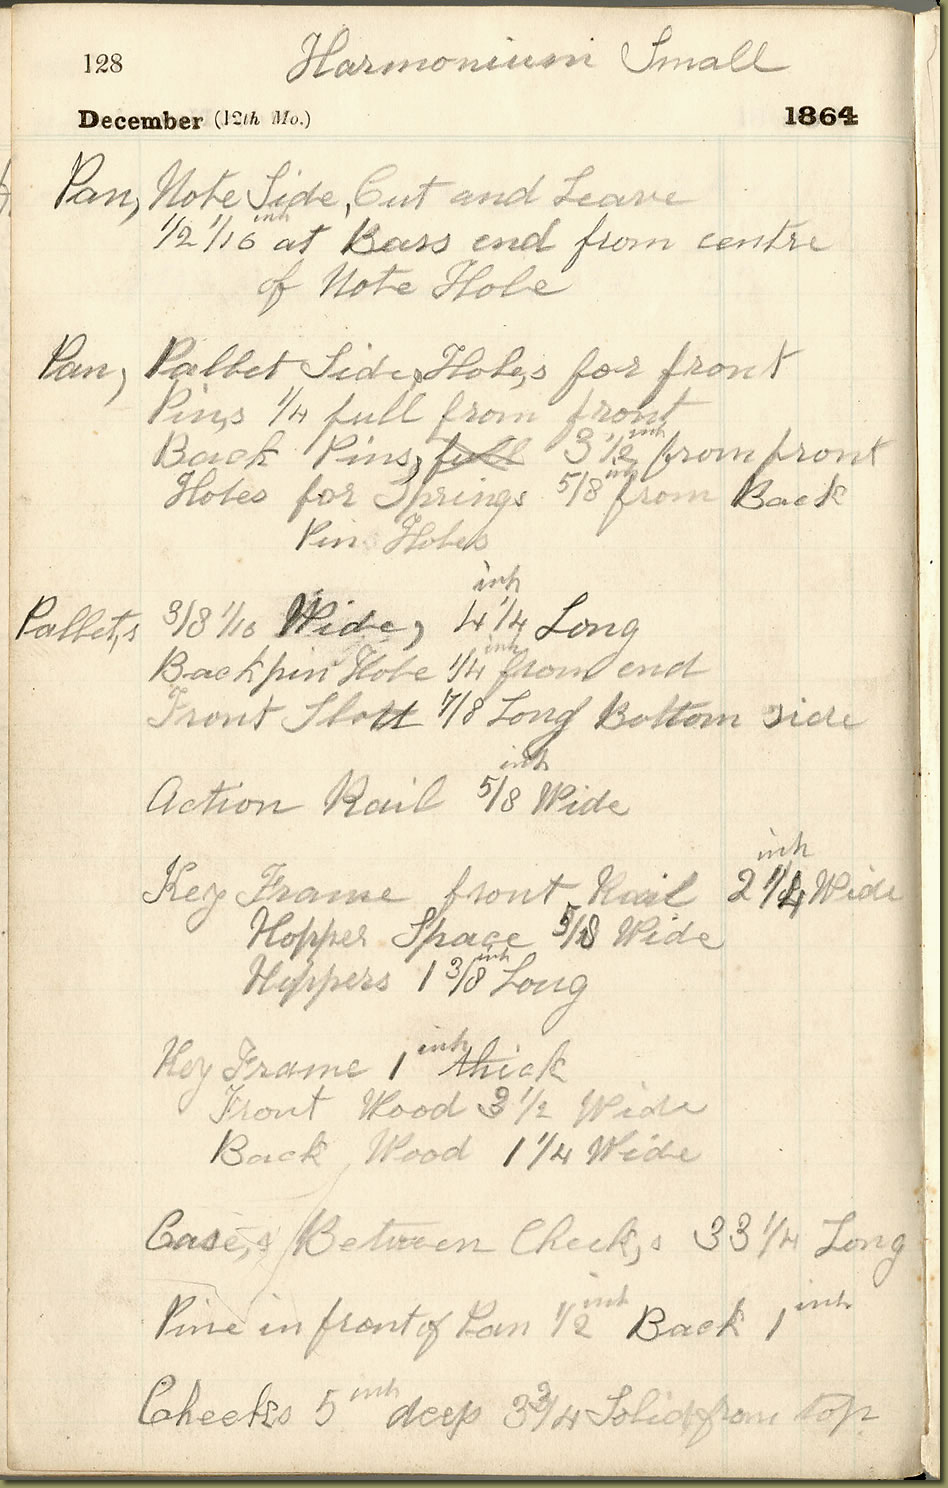 128
Harmonium Small
December (12th Mo.) 1864
Pan, Note Side, Cut and Leave
1/2 1/16 inh at Bass end from centre
of Note Hole
Pan, Pallet Side, Hole,s for front
Pin,s 1/4 full from front
Back Pins, full 3 1/2 inh from front
Holes for Springs 5/8 inh from Back
Pin Holes
Pallet,s 3/8 1/16 Wide, 4 1/4 inh Long
Backpin Hole 1/4 inh from end
Front Slott 7/8 Long Bottom side
Action Rail 5/8 inh Wide
Key Frame front Rail 2 1/4 inh Wide
Hopper Space 5/8 Wide
Hoppers 1 3/8 inh Long
Key Frame 1 inh thick
Front Wood 3 1/2 Wide
Back Wood 1 1/4 Wide
Case,s Between Cheek,s 33 1/4 Long
Pine in front of Pan 1/2 inh Back 1 inh
Cheeks 5 inh deep 3 3/4 Solid from top